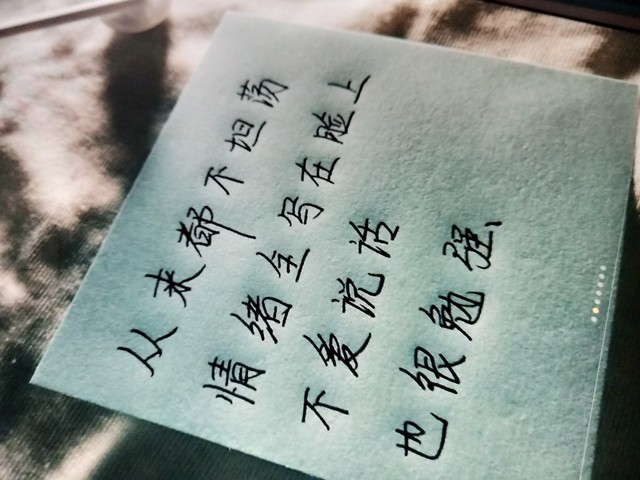 从来都不坦荡
情绪全写在脸上
不爱说话
也很勉强